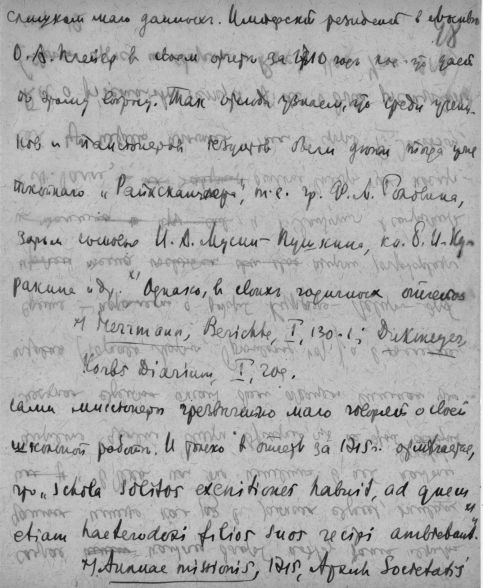 слишком мало данных. Цесарский резидент в Москве
18
О. А. Плейер в своем отчете за 1710 годъ кое-что даетъ
по этому вопросу. Так отсюда узнаем, что среди учени-
ков и пансионеров іезуитов были дети тогда уже
покойнаго „Райхсканцлера", т.е. гр. Ф. А. Головина,
затем сыновья И. А. Мусин-Пушкина, кн. Б. И. Ку-
ракина и др. x) Однако, в своих годичных отчетах
x) Herrmann, Berichte, I, 130-1; Dukmeyer,
Korbs Diarium, I, 209.
сами миссионеры чрезвычайно мало говорят о своей
школьной работе. И только в отчете за 1715 г. отмечается,
что „schola solitas exercitiones habuit, ad quem
etiam haeterodoxi filios suos recipi ambiebant". x)
x) Annuae missionis, 1715, Архив Societatis